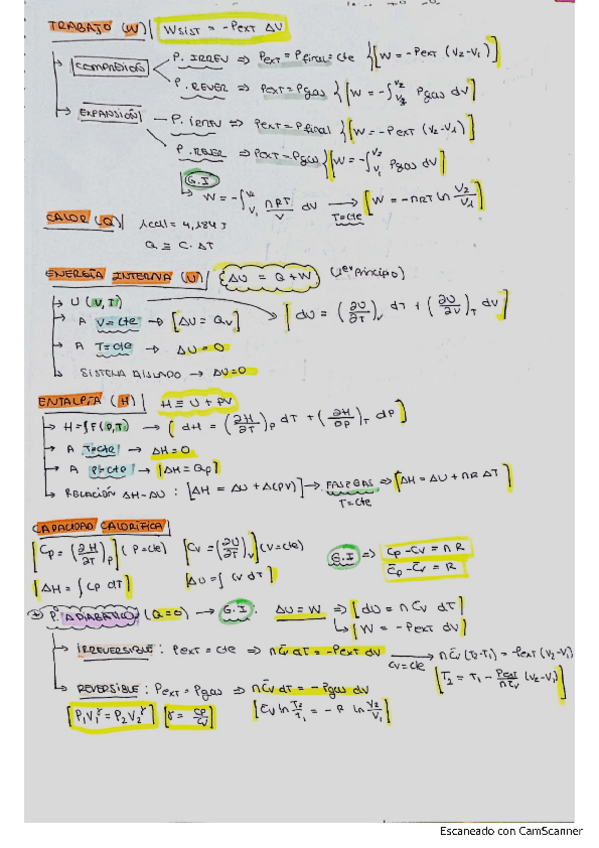 TRABAJO (W) | Wsist = -Pext ΔV
→ COMPRESIÓN → P. IRREV ⇒ Pext = Pfinal = cte {[W = -Pext (V2-V1)]
→ P. REVER ⇒ Pext = Pgas {[W = -∫V1V2 Pgas dV]
→ EXPANSIÓN → P. IRREV ⇒ Pext = Pfinal {[W = -Pext (V2-V1)]
P. REVER ⇒ Pext = Pgas {[W = -∫V1V2 Pgas dV]
G.I
↳ W = -∫V1V2 nRT/V dV → T=cte [W = -nRT ln V2/V1]
CALOR (Q) | 1cal = 4,184 J
Q = C. ΔT
ENERGÍA INTERNA (U) | {ΔU = Q + W} (1er Principio)
→ U (V,T) → [dU = (∂U/∂T)V dT + (∂U/∂V)T dV]
→ A V=cte → [ΔU = Qv]
→ A T=cte → ΔU = 0
↳ SISTEMA AISLADO → ΔU = 0
ENTALPÍA (H) | H = U + PV
→ H = f(P,T) → [dH = (∂H/∂T)P dT + (∂H/∂P)T dP]
→ A T=cte → ΔH = 0
→ A P=cte → [ΔH = Qp]
↳ RELACIÓN ΔH-ΔU : [ΔH = ΔU + Δ(PV)] → FASE GAS T=cte ⇒ [ΔH = ΔU + nRΔT]
CAPACIDAD CALORÍFICA
[Cp = (∂H/∂T)P] (P=cte) [Cv = (∂U/∂T)V] (V=cte) G.I ⇒ Cp - Cv = nR
C̅p - C̅v = R
[ΔH = ∫Cp dT] [ΔU = ∫Cv dT]
P. ADIABÁTICO (Q=0) → G.I. ΔU = W ⇒ [dU = n C̅v dT]
↳ [W = -Pext dV]
→ IRREVERSIBLE : Pext = cte ⇒ n C̅v dT = -Pext dV → Cv=cte n C̅v (T2-T1) = -Pext (V2-V1)
[T2 = T1 - Pext/nC̅v (V2-V1)]
↳ REVERSIBLE : Pext = Pgas ⇒ n C̅v dT = -Pgas dV
[P1V1^γ = P2V2^γ] [γ = Cp/Cv] [C̅v ln T2/T1 = -R ln V2/V1]
Escaneado con CamScanner